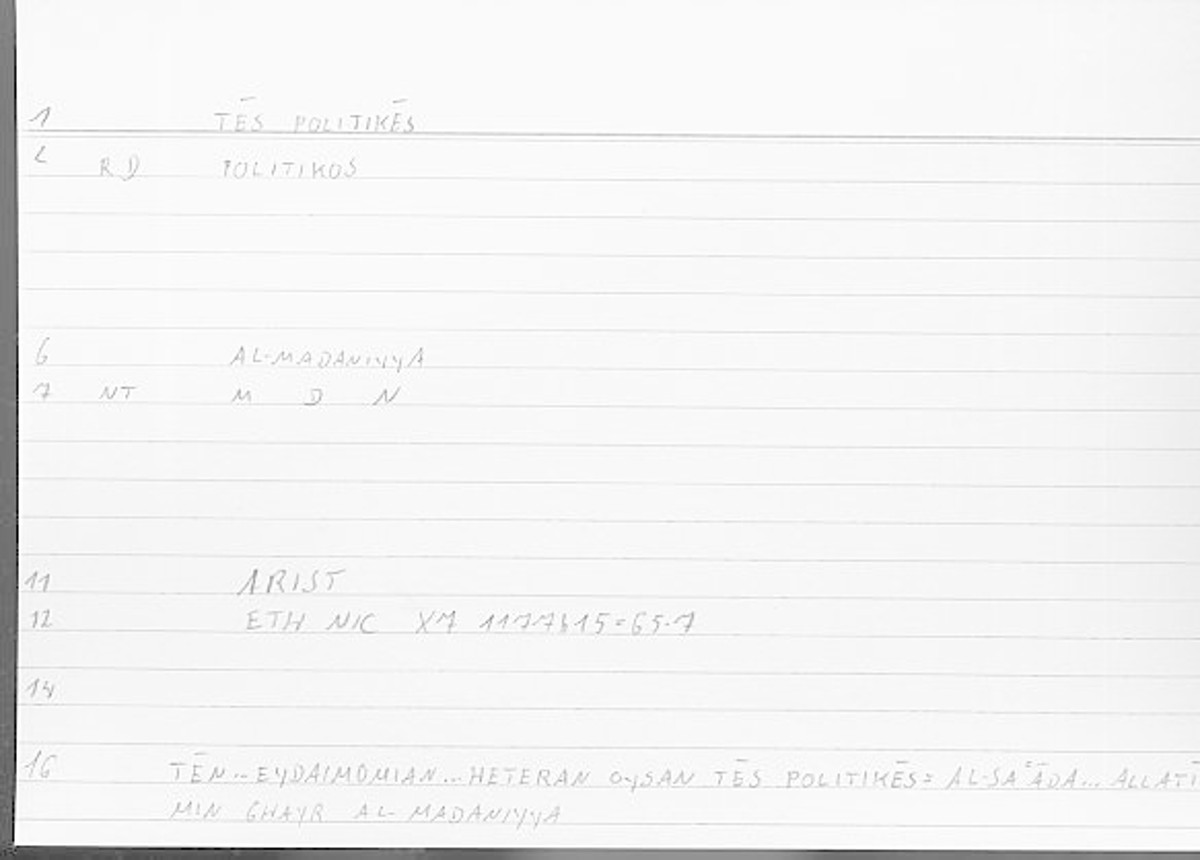 1 TĒS POLITIKĒS
2 RD POLITIKOS
6 AL-MADANIYYA
7 NT M D N
11 ARIST
12 ETH NIC X7 1177b15=65.7
14
16 TĒN...EYDAIMOMIAN...HETERAN OYSAN TĒS POLITIKĒS= AL-SAʿĀDA... ALLATĪ
MIN GHAYR AL-MADANIYYA